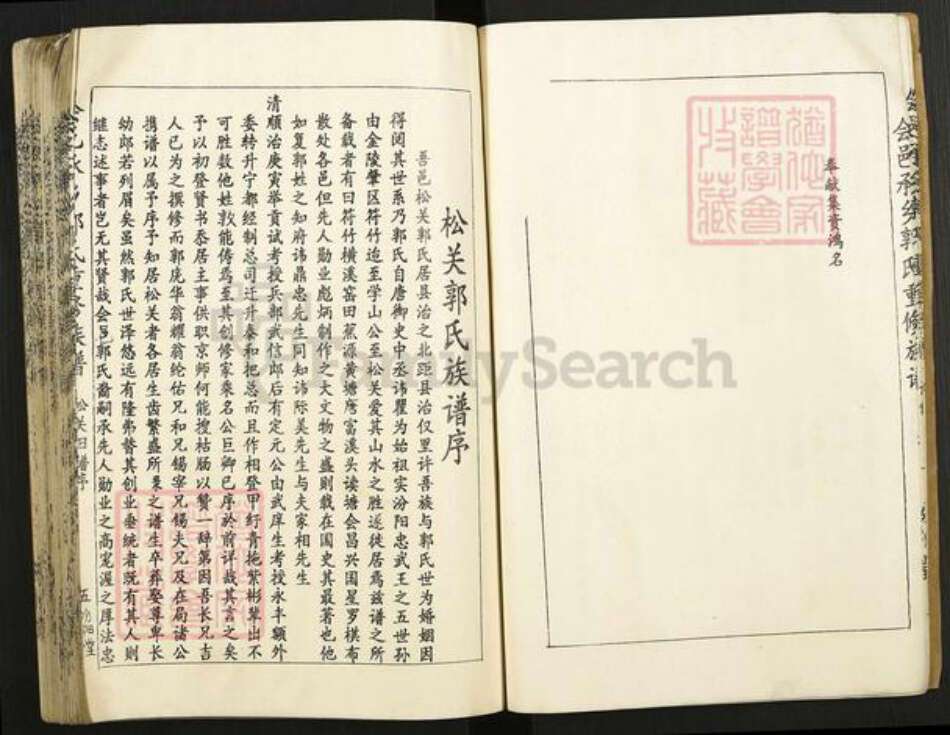 奉献集資鴻名
松关郭氏族谱序
吾邑松关郭氏居县治之北距县治仅里许吾族与郭氏世为婚姻因
得阅其世系乃郭氏自唐御史中丞讳瞿为始祖实汾阳忠武王之五世孙
由金陵肇区符竹迨至学山公至松关爱其山水之胜遂徙居焉兹谱之所
备载者有曰符竹横溪窑田蕉源黄塘詹富溪头读塘会昌兴国星罗棋布
散处各邑但先人勋业彪炳制作之大文物之盛则载在国史其最著也他
如复郭姓之知府讳鼎忠先生同知讳际美先生与夫家相先生
清顺治庚寅举贡试考授兵部武信郎后有定元公由武庠生考授永丰额外
委转升宁都经制总司迁升泰和把总而且作相登甲纡青拖紫彬辈出不
可胜数他姓孰能俦焉至其创修家乘名公巨卿已序於前详哉其言之矣
予以初登贤书忝居主事供职京师何能搜枯肠以赞一辞第因吾长兄吉
人已为之撰修而郭庑华翁耀翁纶佑兄和兄锡宰兄锡夫兄及在局诸公
携谱以属予序予知居松关者各居生齿繁盛所曼之谱生卒葬娶尊卑长
幼郎若列眉矣虽然郭氏世泽悠远有隆弗替其创业垂统者既有其人则
继志述事者岂无其贤哉会邑郭氏裔嗣承先人勋业之高宠渥之厚法忠
松关旧谱序
五
汾阳堂
FamilySearch